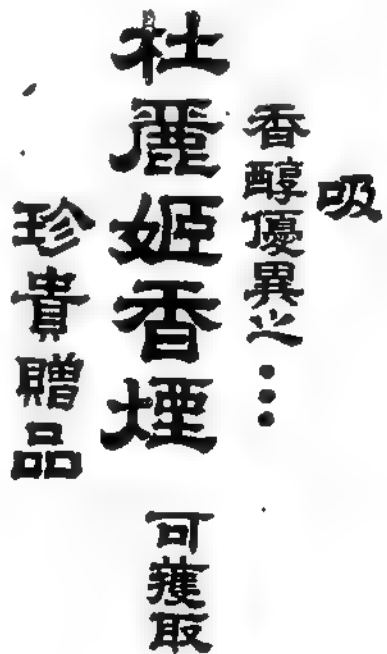 吸
香醇優異之…
杜麗姬香煙
可獲取
珍貴贈品